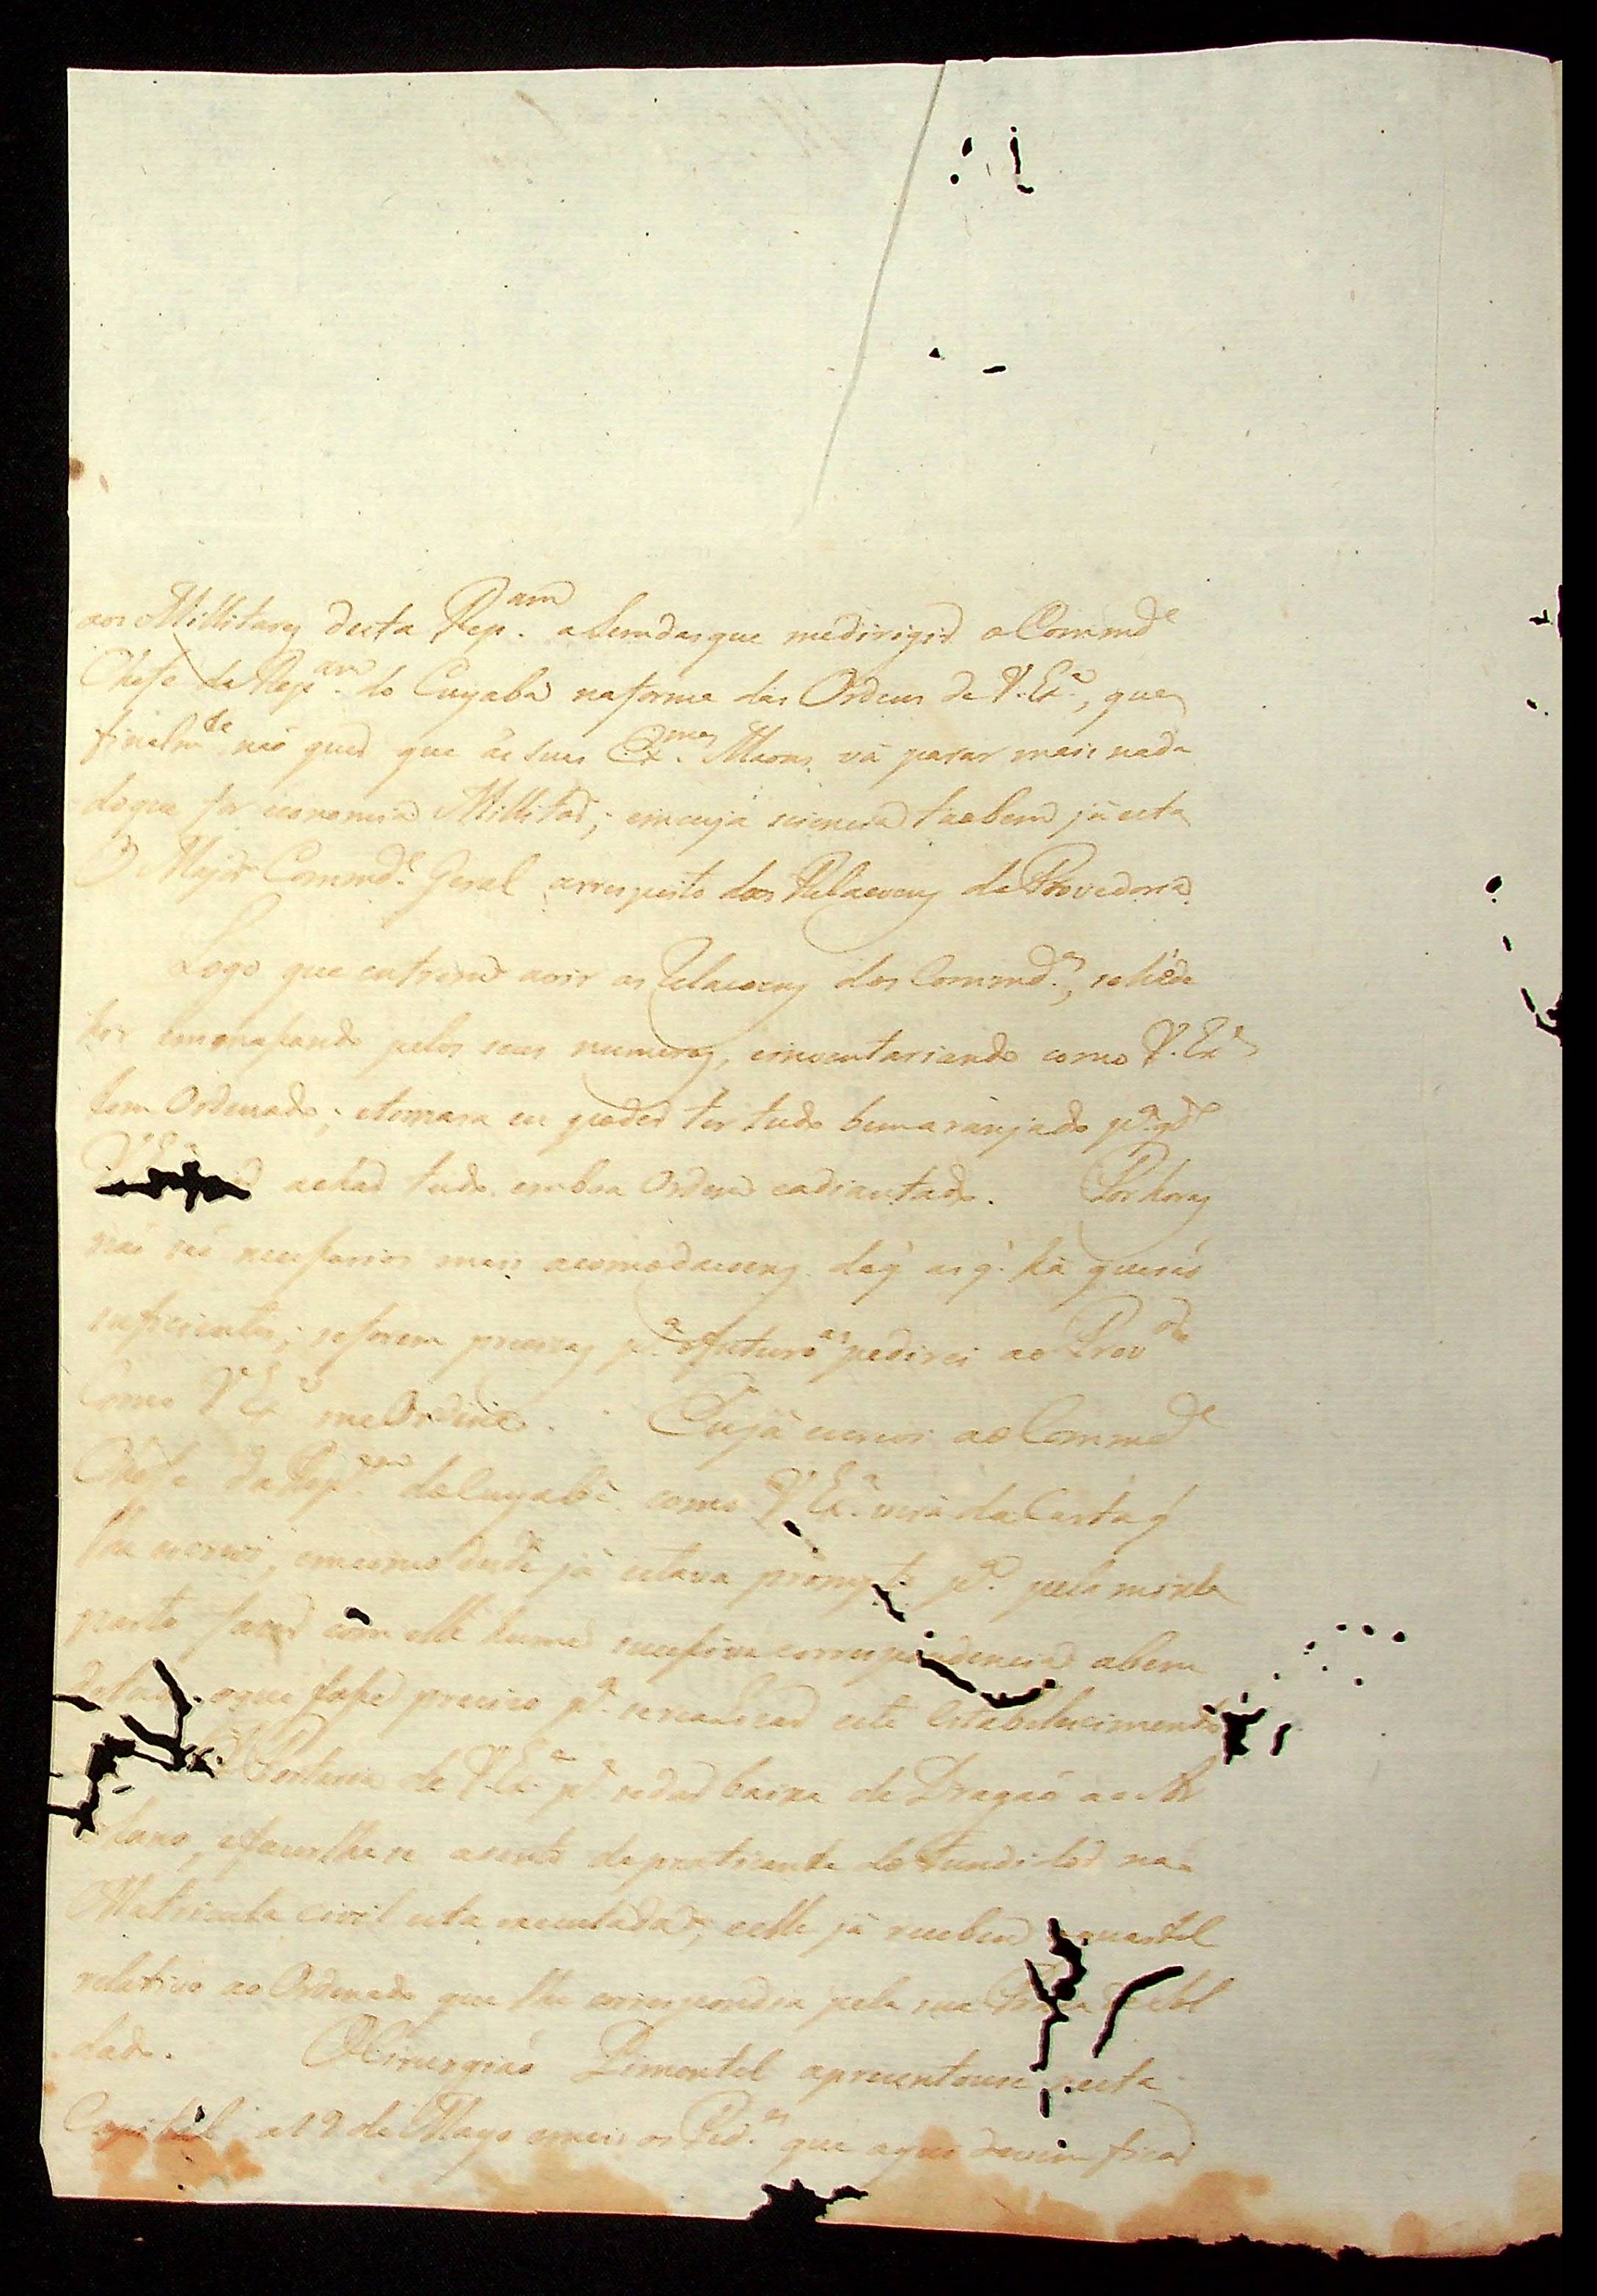 aos Millitares desta Rep.am alem das que medirigio o Commd.e
Chefe da Rep.am do Cuyabá na forma das Ordens de V. Ex.a, que
finalm.te não quer que ás suas Ex.mas Maons vá parar mais nada
do que for economia Millitar; em cuja siencia taobem já esta
O Major Commd.e Geral a respeito das Relacoens da Provedoria.
Logo que entrarem avir as Relacoens dos Commd.es, se hé de
hir emmassando pelos seus numeros, einventariando como V. Ex.a
tem Ordenado; etomara eu poder ter tudo bem aranjado p.a q.do
V. Ex.a achar tudo emboa Ordem eadiantado. Por hora
não são necessarios mais acomodacoens do q' as q' há que são
suficientes; se forem precizas p.a ofuturo as pedirei ao Prov.or
Como V. Ex.a me Ordena. Eu já escrevi ao Commd.e
Chefe da Rep.am do Cuyabá como V. Ex.a verá da Carta q'
lhe escrevi, em como desde já estava prompto p.a pela minha
parte fazer com elle huma sucessiva correspondencia abem
de tudo oque fosse precizo p.a se realizar este Estabelecimento
Portaria de V. Ex.a p.a se dar baixa de Dragão ao
efazerlhe se asento de praticante de Fundidor na
Matricula civil esta executada; eelle já recebeu o quartel
relativo ao Ordenado que lhe correspondia pela sua Praça de Sol
dado. O Cirurgião Pimentel aprezentouse nesta
Capital a 19 de Mayo emais os Ped.es que aqui devem ficar